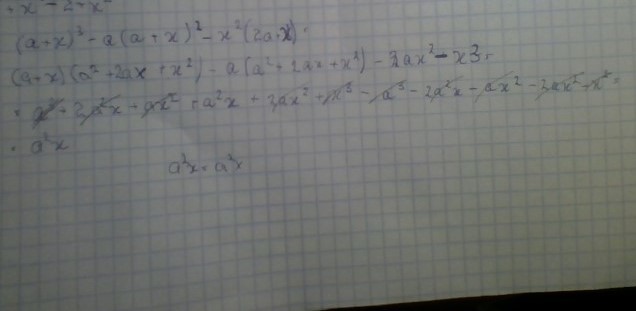 + x² - 2 + x²
(a+x)³ - a(a+x)² - x²(2a+x) =
(a+x)(a²+2ax+x²) - a(a²+2ax+x²) - 2ax² - x3 =
= a³ + 2a²x + ax² + a²x + 2ax² + x³ - a³ - 2a²x - ax² - 2ax² - x³ =
= a²x
a²x = a²x